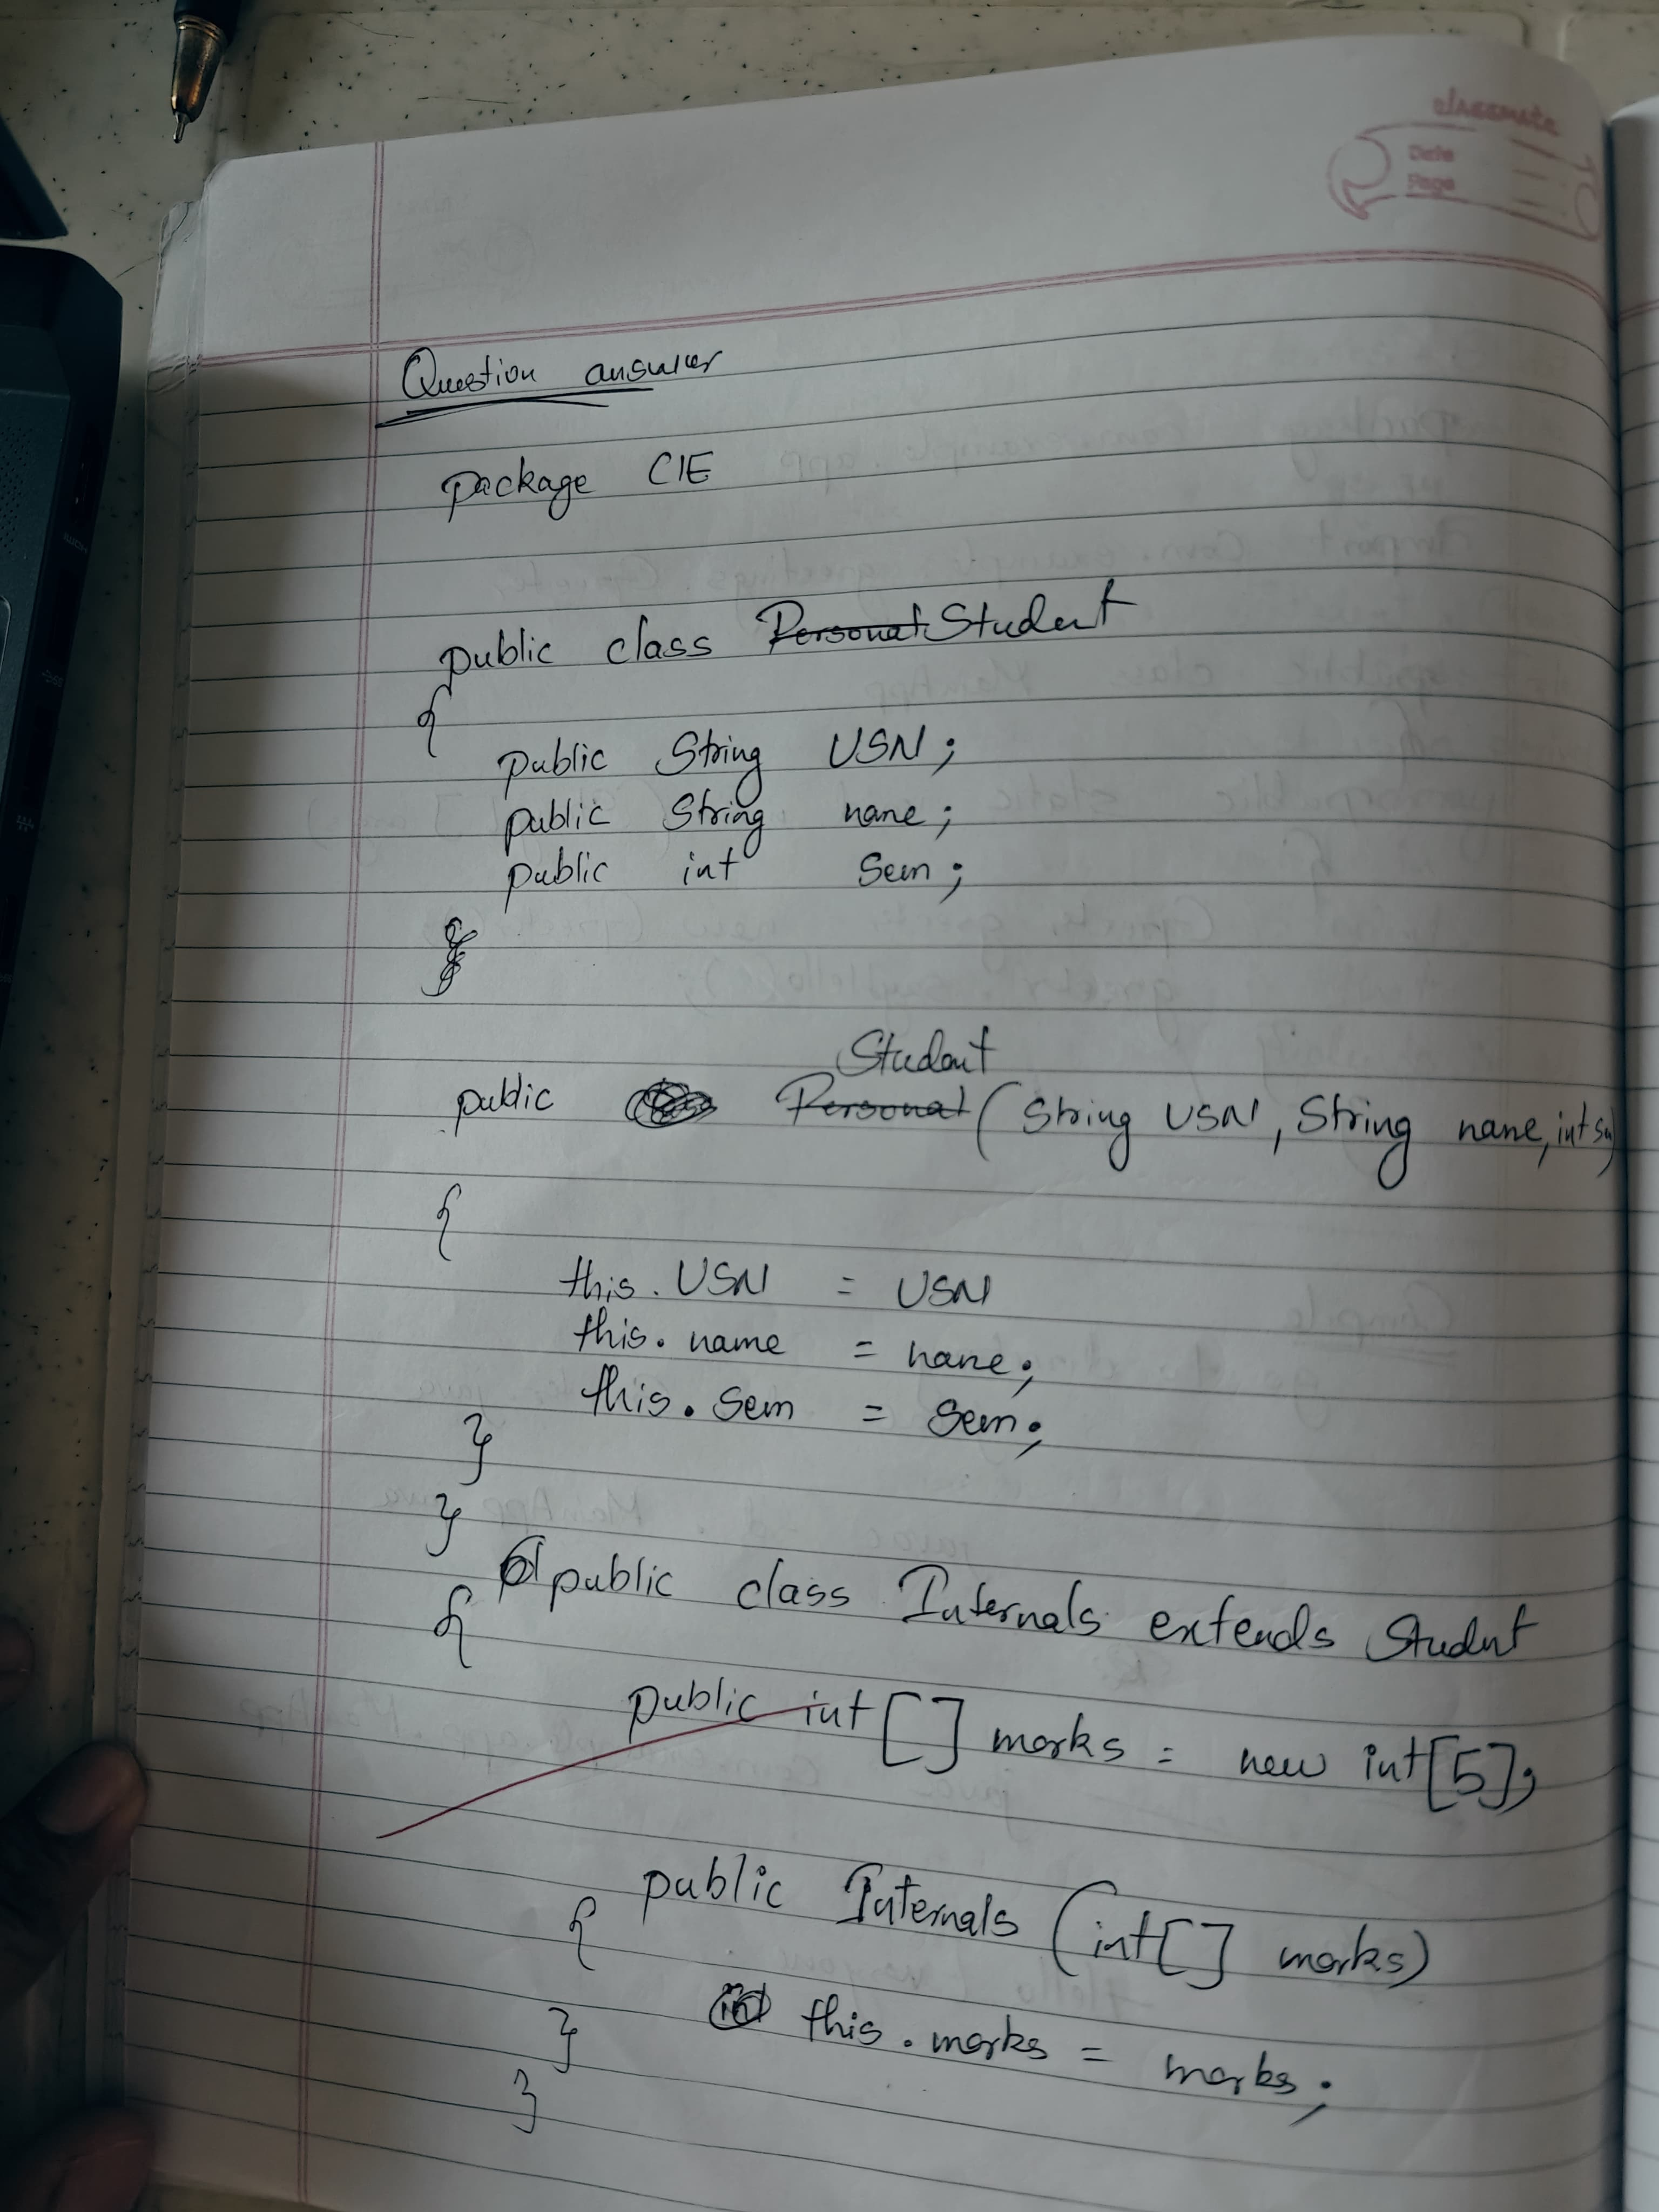 classmate
Date
Page
Question answer
package CIE
public class Personal Student
{
public String USN;
public String name;
public int Sem;
Student
public Personal (String USN, String name, int
{
this. USN = USN
this. name = name;
this. sem = sem;
}
}
public class Internals extends Student
{
public int [] marks = new int[5];
public Internals (int[] marks)
{
int this. marks = marks;
}
}